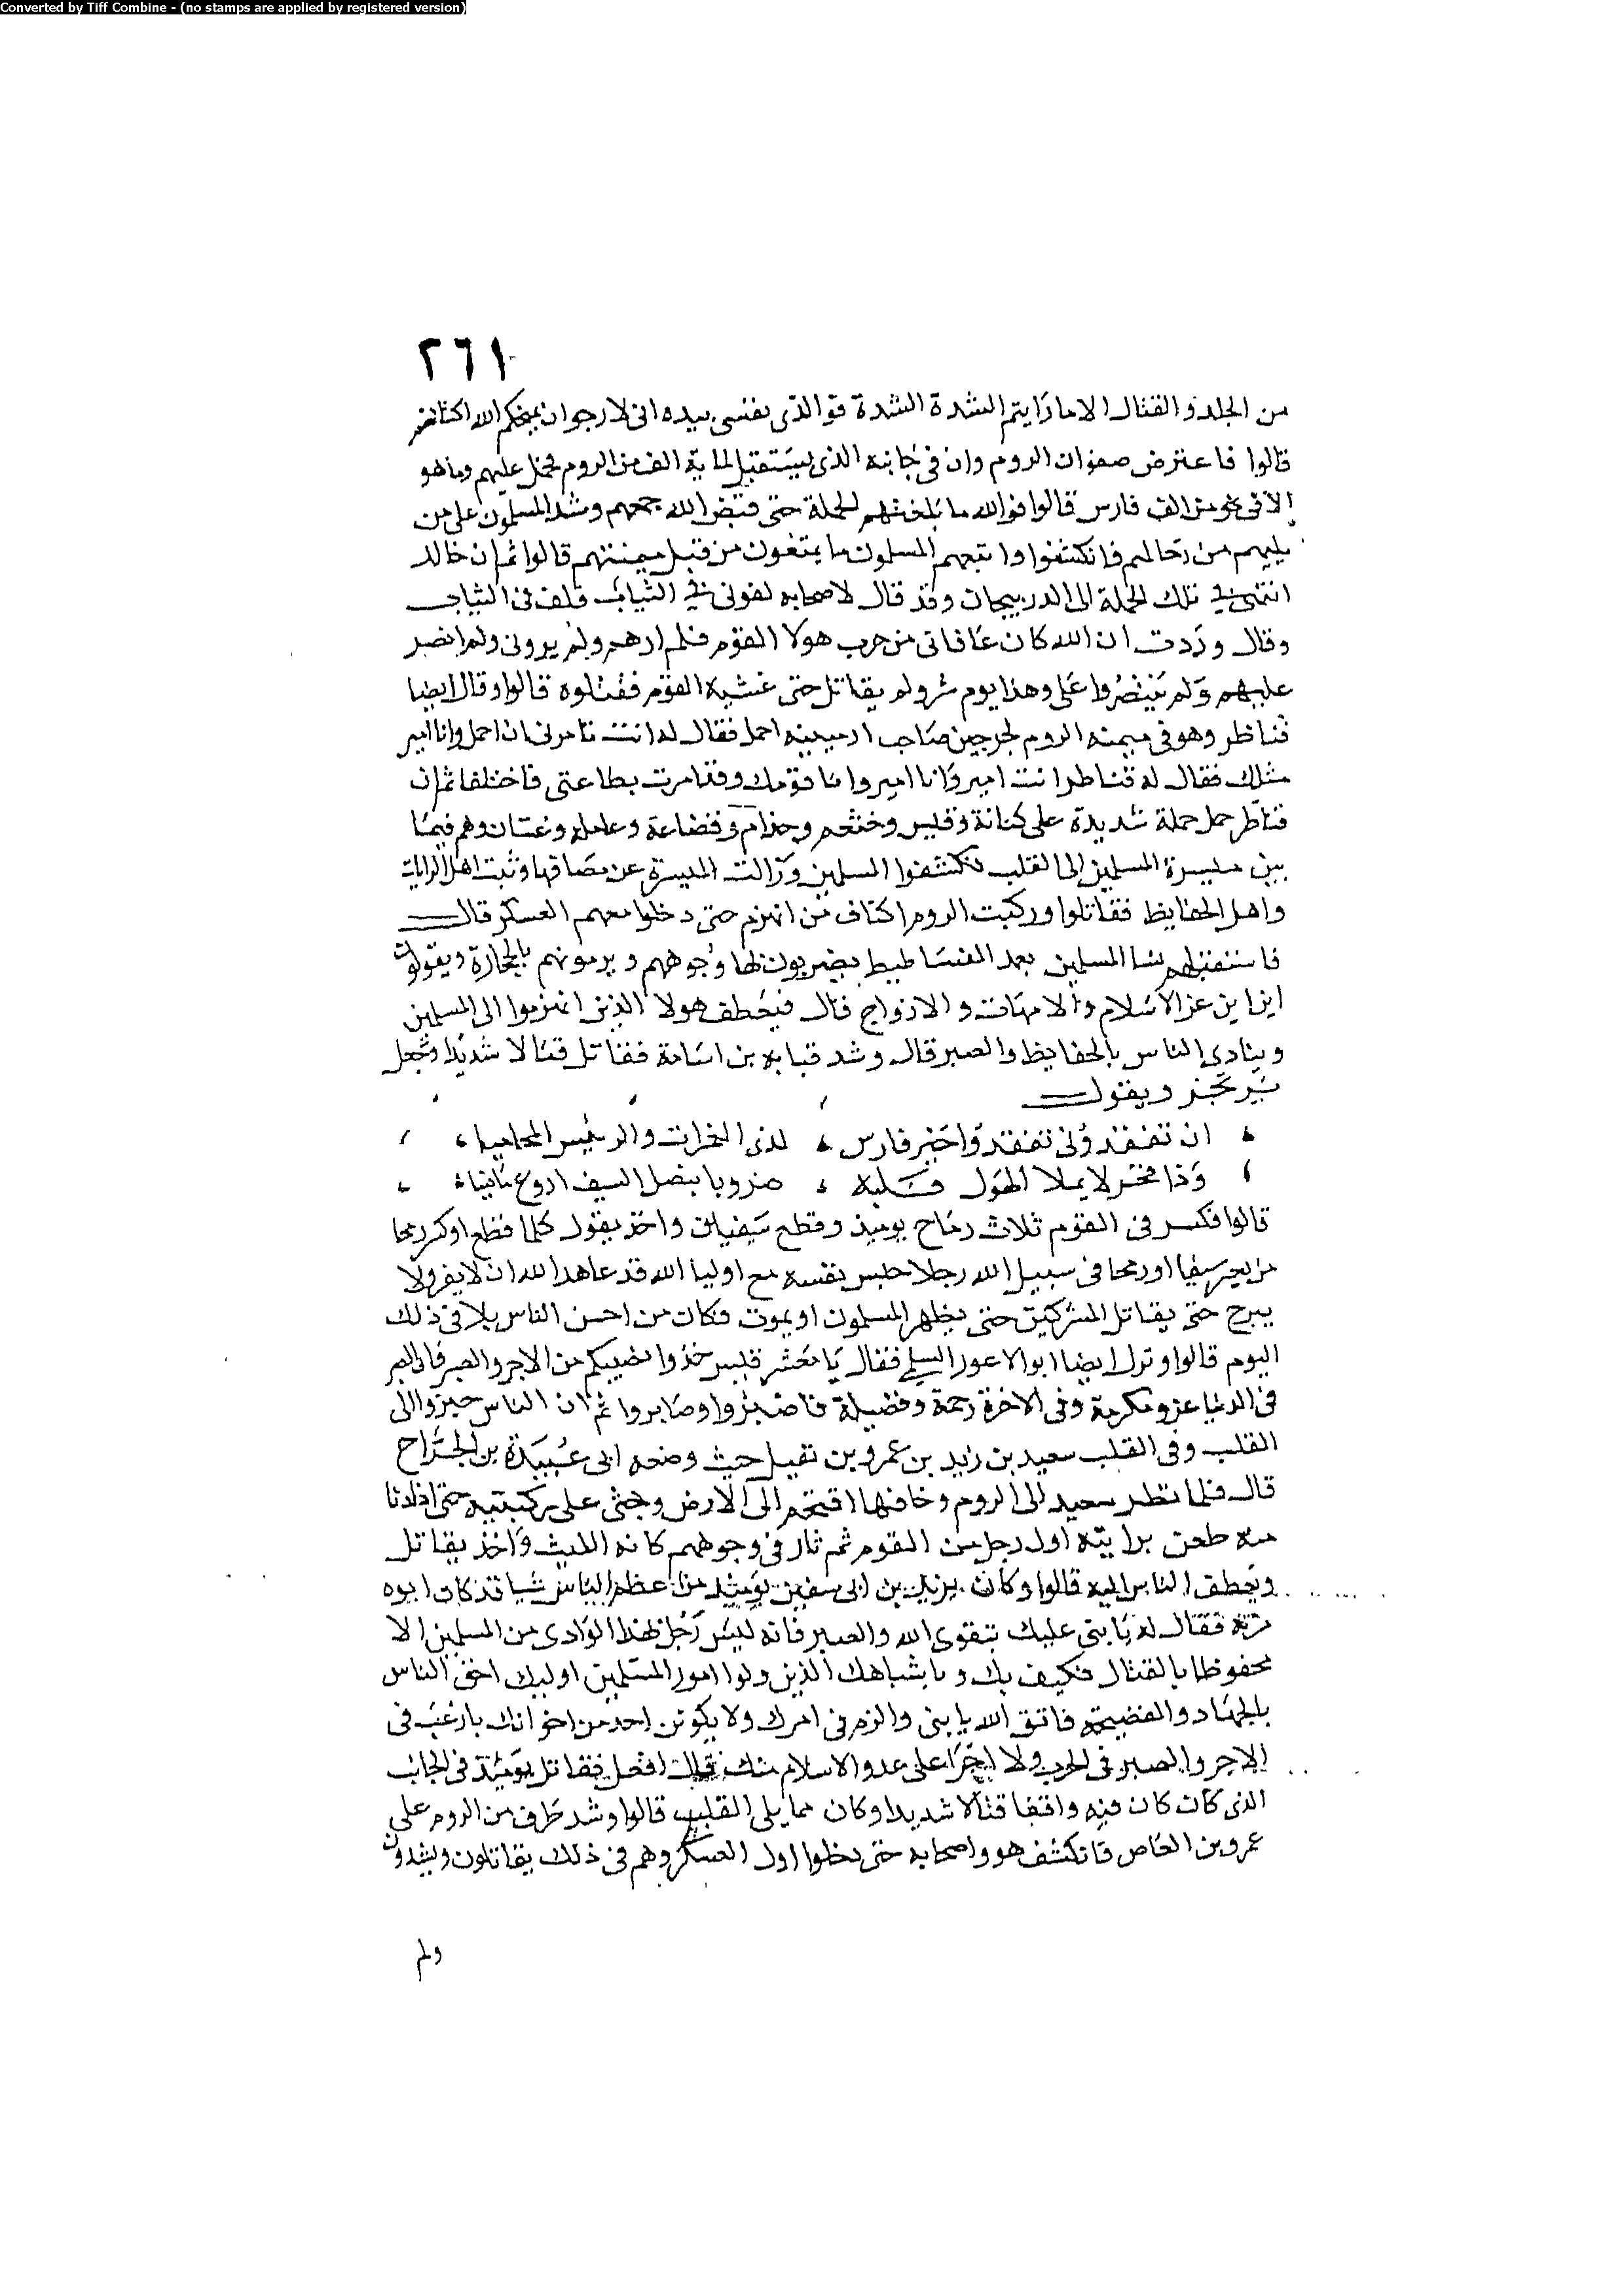 Converted by Tiff Combine - (no stamps are applied by registered version)
٢٦١
من الجلد والقتال الا ما رايتم الشدة الشدة فوالذي نفسي بيده اني لارجوا ان يمنحكم الله اكتافهم
قالوا فاعترض صفوان الروم وان في جانبه الذي يستقبل لماية الف من الروم فحمل عليهم وما هو
الا في نحو من الف فارس قالوا فوالله ما بلغتهم الحملة حتى فض الله جمعهم وشد المسلمون على من
يليهم من رجالهم فانكشفوا واتبعهم المسلمون ما يمتنعون من قبل ميمنتهم قالوا ثم ان خالد
انتهى في تلك الحملة الى الدربيجان وقد قال لاصحابه لفوني في الثياب فلف في الثياب
وقال وددت ان الله كان عافاني من حرب هولا القوم فلم ارهم ولم يروني ولم انصر
عليهم ولم ينتصروا علي وهذا يوم شر ولم يقاتل حتى غشيه القوم فقتلوه قالوا وقال ايضا
قناطر وهو في ميمنه الروم لجرجين صاحب ارمينيه احمل فقال له انت تامرني ان احمل وانا امير
مثلك فقال له قناطر انت امير وانا امير وانا فوقك وقد امرت بطاعتي فاختلفا ثم ان
قناطر حمل حملة شديدة على كنانة وقيس وخثعم وجذام وقضاعة وعامله وغسان وهم فيما
بين ميسرة المسلمين الى القلب فكشفوا المسلمين وزالت الميسرة عن مصافها وثبت اهل الرايات
واهل الحفايظ فقاتلوا وركبت الروم اكتاف من انهزم حتى دخلوا معهم العسكر قال
فاستقبلهم نسا المسلمين بعمد الفساطيط يضربون بها وجوههم ويرمونهم بالحجارة ويقولون
اين اين عز الاسلام والامهات والازواج قال فيعطف هولا الذين انهزموا الى المسلمين
وينادي الناس بالحفايظ والصبر قال وشد قباث بن اسامة فقاتل قتالا شديدا وجعل
يرتجز ويقول
ان تفقدوني تفقدوا خير فارس لدى الغمرات والرئيس المحاميا
وذا فخر لا يملا الهول قلبه ضروبا بنصل السيف اروع ماضيا
قالوا فكسر في القوم ثلاث رماح يوميذ وقطع سيفين واخذ يقول كلما قطع او كسر رمحا
من يعير سيفا او رمحا في سبيل الله رجلا حبس نفسه مع اوليا الله قد عاهد الله ان لا يفر ولا
يبرح حتى يقاتل المشركين حتى يظهر المسلمون او يموت فكان من احسن الناس بلا في ذلك
اليوم قالوا ونزل ايضا ابوالاعور السلمي فقال يا معشر قيس خذوا نصيبكم من الاجر والصبر فان الصبر
في الدنيا عز ومكرمة وفي الاخرة رحمة وفضيلة فاصبروا وصابروا ثم ان الناس حيزوا الى
القلب وفي القلب سعيد بن زيد بن عمرو بن نفيل حيث وضعه ابي عبيدة بن الجراح
قال فلما نظر سعيد الى الروم وخافها اقتحم الى الارض وجثى على ركبتيه حتى اذا دنا
منه طعن برايته اول رجل من القوم ثم ثار في وجوههم كانه الليث واخذ يقاتل
ويعطف الناس اليه قالوا وكان يزيد بن ابي سفين يوميذ من اعظم الناس شيا قد كان ابوه
مر به فقال له يا بني عليك بتقوى الله والصبر فانه ليس رجل بهذا الوادي من المسلمين الا
محفوظا بالقتال فكيف بك وباشباهك الذين ولوا امور المسلمين اوليك احق الناس
بالجهاد والفضيحة فاتق الله يا بني والزم في امرك ولا يكونن احد من اخوانك بارغب في
الاجر والصبر في الحرب ولا اجرا على عدو الاسلام منك قال افعل فقاتل يومئذ في الجانب
الذي كان فيه واقفا قتالا شديدا وكان مما يلي القلب قالوا وشد طرف من الروم على
عمرو بن العاص فانكشف هو واصحابه حتى دخلوا اول العسكر وهم في ذلك يقاتلون ويشدون
ولم